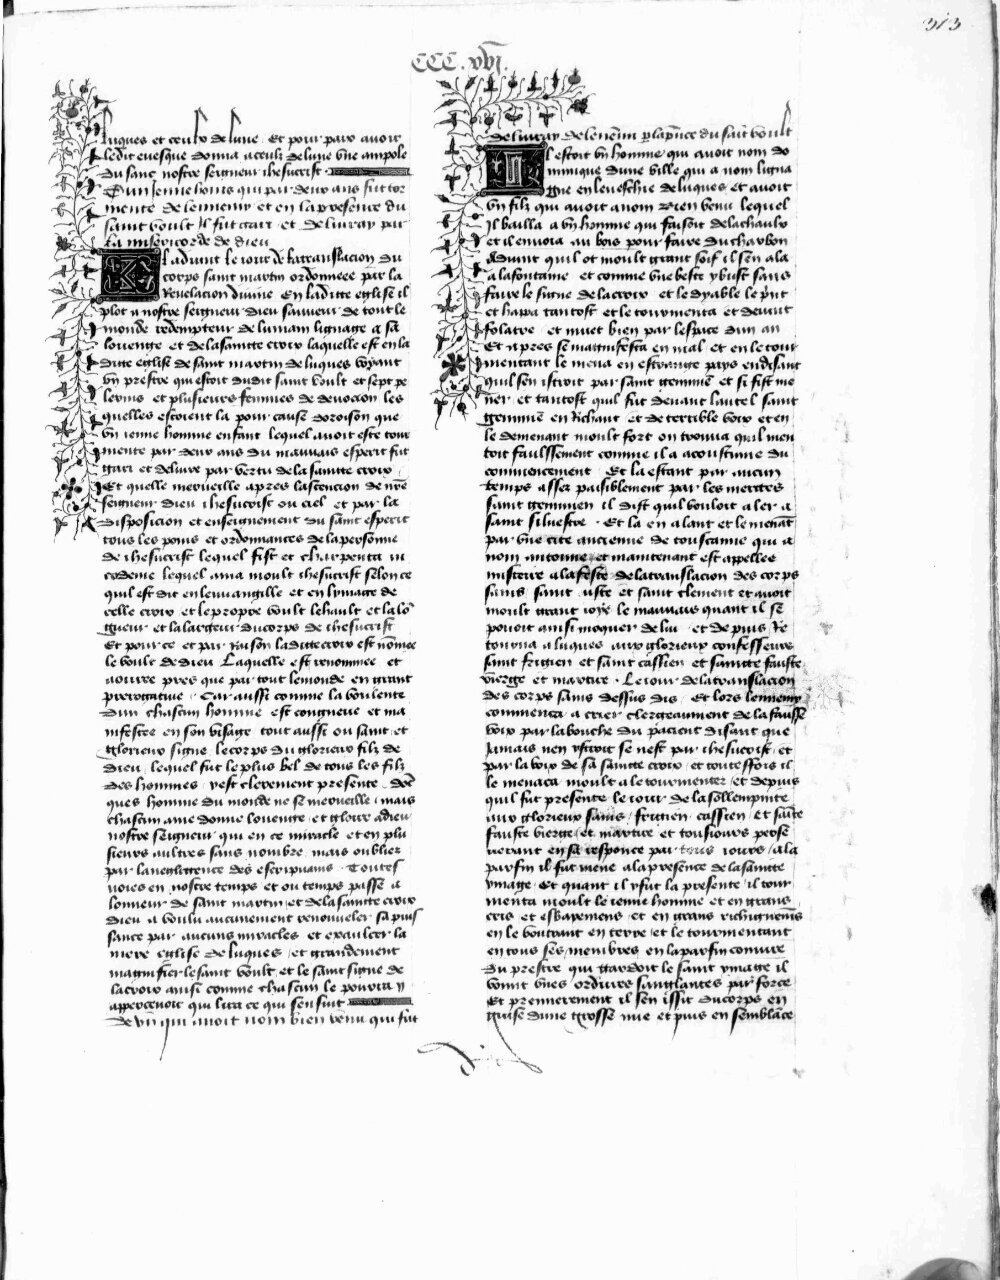 313
CCC.xvj.
luques et ceulx de lune Et pour paix avoir
ledit evesque donna a ceulx de lune une ampole
du sanc nostre seigneur ihesucrist
Dun jenne homs qui par deux ans fut tor
mente de lennemy et en la presence du
saint voult il fut gari et delivray par
la misericorde de dieu
El advint le jour de la translacion du
corps saint martin ordonnee par la
Revelacion divine En laditte eglise il
plot a nostre seigneur dieu sauveur de tout le
monde redempteur de lumain lignage a sa
louenge et de la saintte croix laquelle est en la
ditte eglise de saint martin de luques voyant
un prestre qui estoit dudit saint voult et sept pe
lerins et plusieurs femmes de devocion les
quelles estoient la pour cause doroison que
un jenne homme enfant lequel avoit este tour
mente par deux ans du mauvais esperit fut
gari et delivre par vertu de la saintte croix
Et quelle merveille apres lascencion de nre
seigneur dieu ihesucrist ou ciel et par la
disposicion et enseignement du saint esperit
tous les poins et ordonnances de la personne
de ihesucrist lequel fist et charpenta ni
codeme lequel ama moult ihesucrist selon ce
quil est dit en leuvangille et en lymage de
celle croix et le propre voult le hault et la lo
gueur et la largeur du corps de ihesucrist
Et pour ce et par raison laditte croix est nomee
le voult de dieu Laquelle est renommee et
aouree pres que par tout le monde en grant
prerogative Car aussi comme la voulente
dun chascun homme est congneue et ma
nifestee en son visage tout aussi ou saint et
glorieux signe le corps du glorieux filz de
dieu lequel fut le plus bel de tous les filz
des hommes y est clerement presente
ques homme du monde ne se merveille mais
chascun ame donne louenge et gloire a dieu
nostre seigneur qui en ce miracle et en plu
sieurs aultres sans nombre mais oublier
par la negligence des escripvains Toutes
voies en nostre temps et ou temps passe a
lonneur de saint martin et de la saintte croix
dieu a voulu aucunement renouveler sa puis
sance par aucuns miracles et exaulcer la
mere eglise de luques et grandement
magnifier le saint voult et le saint signe de
la croix ainsi comme chascun le pourra y
appercevoir qui lira ce qui sensuit
De un qui avoit nom bien venu qui fut
delivray de lennemi par la presence du saint voult
Il estoit un homme qui avoit nom do
minique dune ville qui a nom ligna
gne en leveschie de luques et avoit
un filz qui avoit a nom bien venu lequel
Il bailla a un homme qui faisoit de la chaulx
et il envoia au bois pour faire du charbon
Advint quil ot moult grant soif il sen ala
a la fontaine et comme une beste y but sans
faire le signe de la croix et le dyable le print
et hapa tantost et le tourmenta et devint
folatre et muet bien par lespace dun an
Et apres se magnifesta en mal et en le tour
mentant le mena en estrange pays en disant
quil sen istroit par saint gemmien et si fist me
ner et tantost quil fut devant lautel saint
gemmien en Richant et de terrible voix et en
le demenant moult fort on trouva quil men
toit faulssement comme il a acoustume du
commencement Et la estant par aucun
temps assez paisiblement par les merites
saint gemmien il dist quil vouloit aler a
saint silvestre Et la en alant et le menant
par une cite ancienne de touscanne qui a
nom antonne et maintenant est appellee
misterre a la feste de la translacion des corps
sains saint juste et saint clement et avoit
moult grant joye le mauvais quant il se
pouoit ainsi moquer de lui et depuis Re
tourna a luques aux glorieux confesseurs
saint frigien et saint cassien et saincte fauste
vierge et martire Le jour de la translacion
des corps sains dessus dis Et lors lennemy
commenca a crier clergeaument de la fausse
voix par la bouche du pacient disant que
Jamais nen ystroit se nest par ihesucrist et
par la voix de sa saintte croix et touteffois il
le menaca moult a le tourmenter et depuis
quil fut presente le jour de la sollempnite
aux glorieux sains frigien cassien et sainte
fauste vierge et martire et tousiours perse
verant en sa responce par tous jours a la
parfin il fut mene a la presence de la saintte
ymage Et quant il y fut la presente il tour
menta moult le jenne homme et en grans
cris et esbaremens et en grans richignemens
en le boutant en terre et le tourmentant
en tous ses membres en la parfin comme
du prestre qui gardoit le saint ymage il
vomit unes ordures sanglantes par force
Et premierement il sen issit du corps en
guise dune grosse nue et puis en semblance